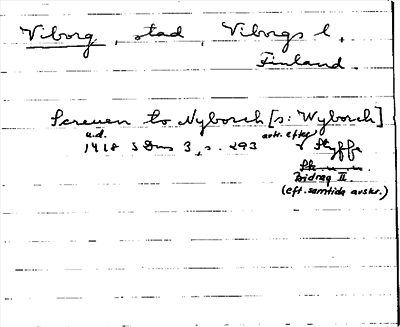 Viborg, stad, Viborgs l.,
Finland.
Screuen to Nyborch [s: Wyborch]
u.d. avtr. efter
1418 SDns 3, s. 293 Styffe
Bidrag II.
(eft. samtida avskr.)